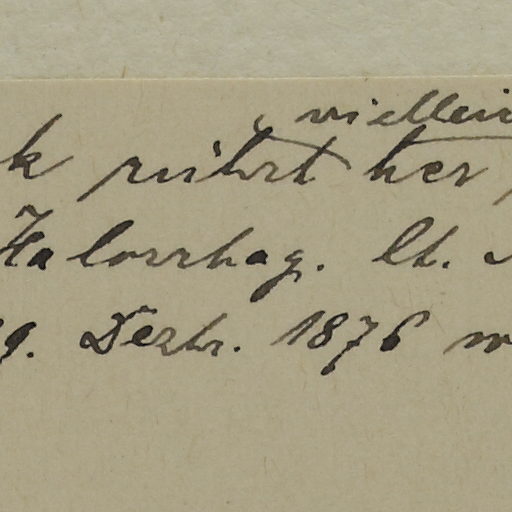 viellei
k rührt her
Halorrhag. lt.
9. Dezbr. 1876